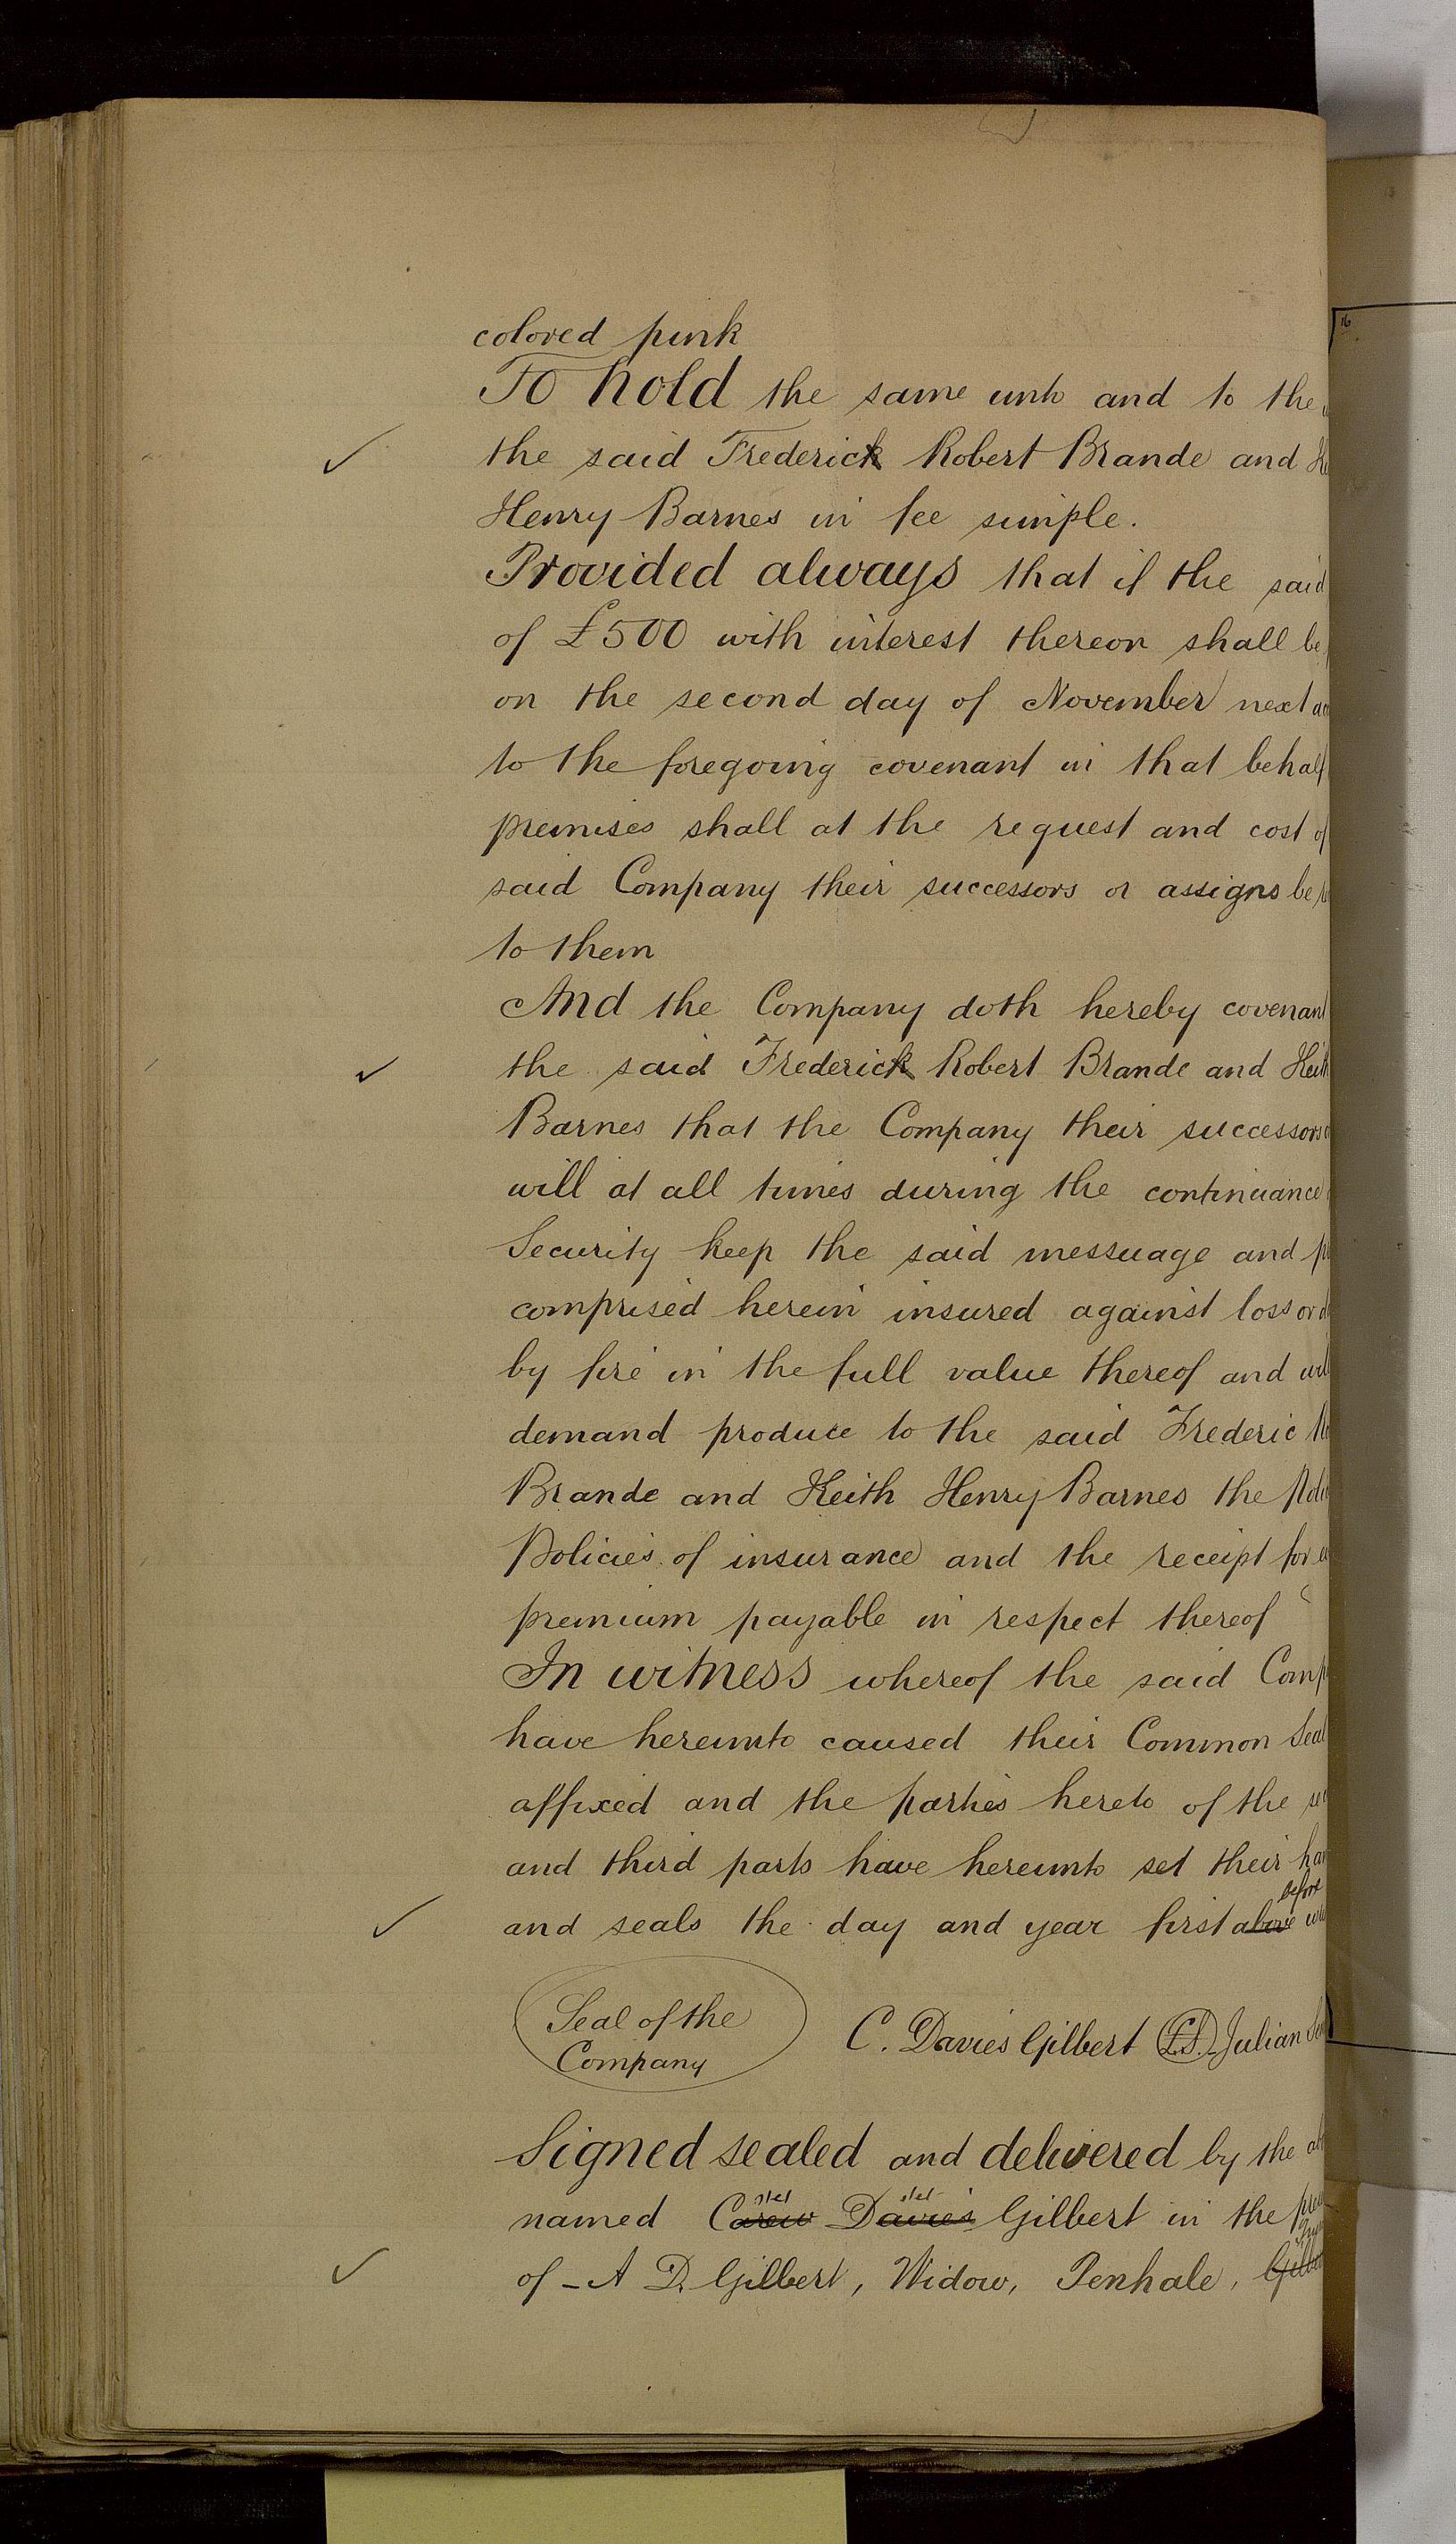 colored pink
To hold the same unto and to the
the said Frederick Robert Brande and
Henry Barnes in fee simple.
Provided always that if the said
of £500 with interest thereon shall be
on the second day of November next
to the foregoing covenant in that behalf
premises shall at the request and cost of
said Company their successors or assigns be
to them
And the Company doth hereby covenant
the said Frederick Robert Brande and Keith
Barnes that the Company their successors
will at all times during the continuance
Security keep the said messuage and
comprised herein insured against loss or
by fire in the full value thereof and will
demand produce to the said Frederic
Brande and Keith Henry Barnes the
Policies of insurance and the receipt for
premium payable in respect thereof
In witness whereof the said Comp
have hereunto caused their Common Seal
affixed and the parties hereto of the
and third parts have hereunto set their
before
and seals the day and year first above
Seal of the
Company
C. Davies Gilbert L.S. Julian
Signed sealed and delivered by the
stet stet
named Carew Davies Gilbert in the
of - A D. Gilbert, Widow, Penhale,
16